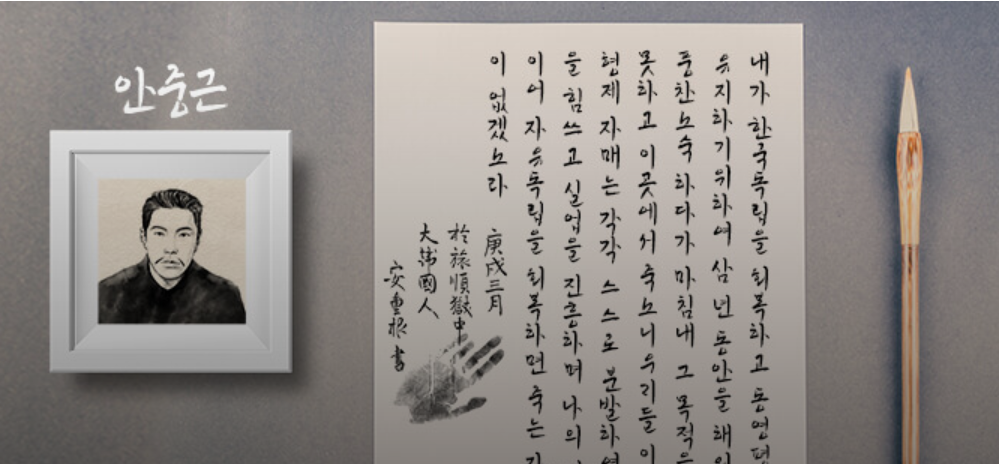 안중근
내가 한국독립을 회복하고 동양평
유지하기위하여 삼 년 동안을 해외
풍찬노숙 하다가 마침내 그 목적은
못하고 이곳에서 죽노니 우리들 이
형제 자매는 각각 스스로 분발하여
을 힘쓰고 실업을 진흥하며 나의
이어 자유독립을 회복하면 죽는
이 없겠노라
庚戌三月
於旅順獄中
大韓國人
安重根 書